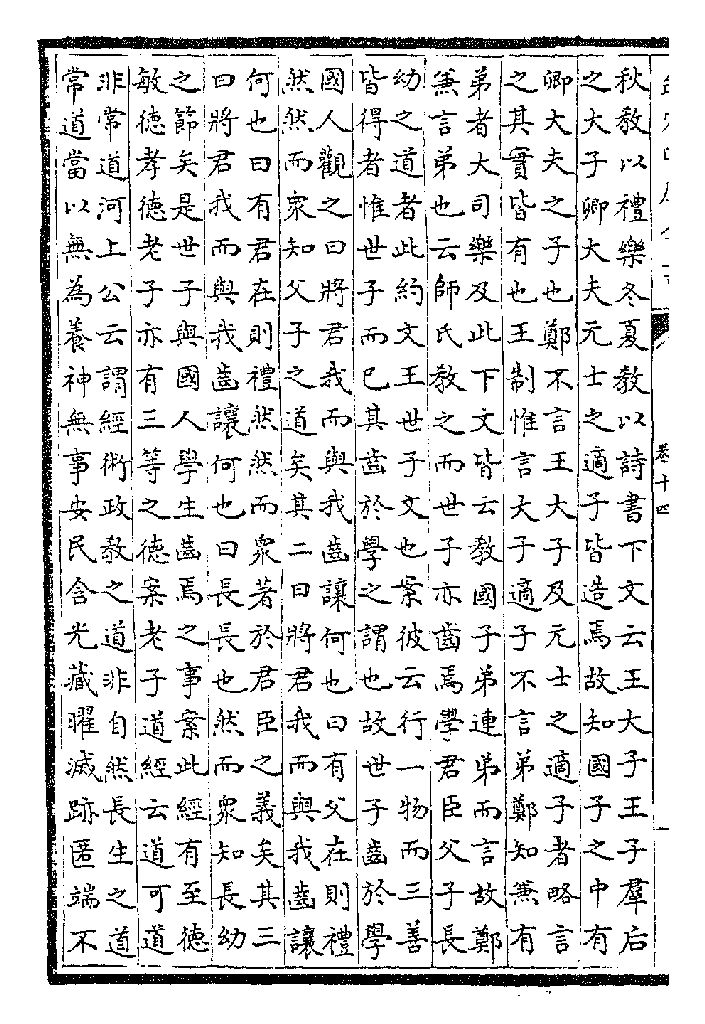 卷十四
秋教以禮樂冬夏教以詩書下文云王大子王子羣后
之大子卿大夫元士之適子皆造焉故知國子之中有
卿大夫之子也鄭不言王大子及元士之適子者略言
之其實皆有也王制惟言大子適子不言弟鄭知兼有
弟者大司樂及此下文皆云教國子弟連弟而言故鄭
兼言弟也云師氏教之而世子亦齒焉學君臣父子長
幼之道者此約文王世子文也案彼云行一物而三善
皆得者惟世子而已其齒於學之謂也故世子齒於學
國人觀之曰將君我而與我齒讓何也曰有父在則禮
然然而衆知父子之道矣其二曰將君我而與我齒讓
何也曰有君在則禮然然而衆著於君臣之義矣其三
曰將君我而與我齒讓何也曰長長也然而衆知長幼
之節矣是世子與國人學生齒焉之事案此經有至德
敏德孝德老子亦有三等之德案老子道經云道可道
非常道河上公云謂經術政教之道非自然長生之道
常道當以無為養神無事安民含光藏曜滅跡匿端不